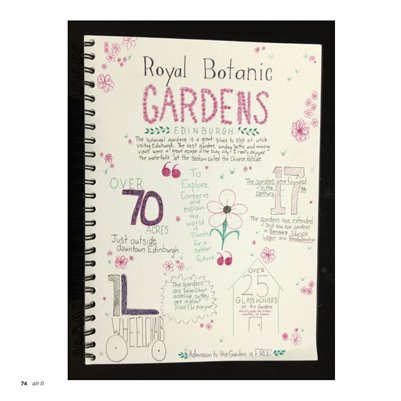 Royal Botanic
GARDENS
EDINBURGH
The botanical gardens is a great place to stop at while
visiting Edinburgh. The vast gardens, winding paths and amazing
views were a great escape from the busy city. I really enjoyed
the waterfalls at the section called the Chinese Hillside.
OVER
70
ACRES
Just outside
downtown Edinburgh
"To
Explore,
Conserve
and
explain
the
world
of
Plants
for a
better
future"
The gardens were founded
in the 17th
century
The gardens has extended
and now has gardens in
Benmore,
Logan and
1L
WHEELCHAIR
The gardens
are wheelchair
accessible, so they
are a great
place for everyone!
OVER
25
GLASSHOUSES
at the Gardens
Admission to the Garden is FREE!
74